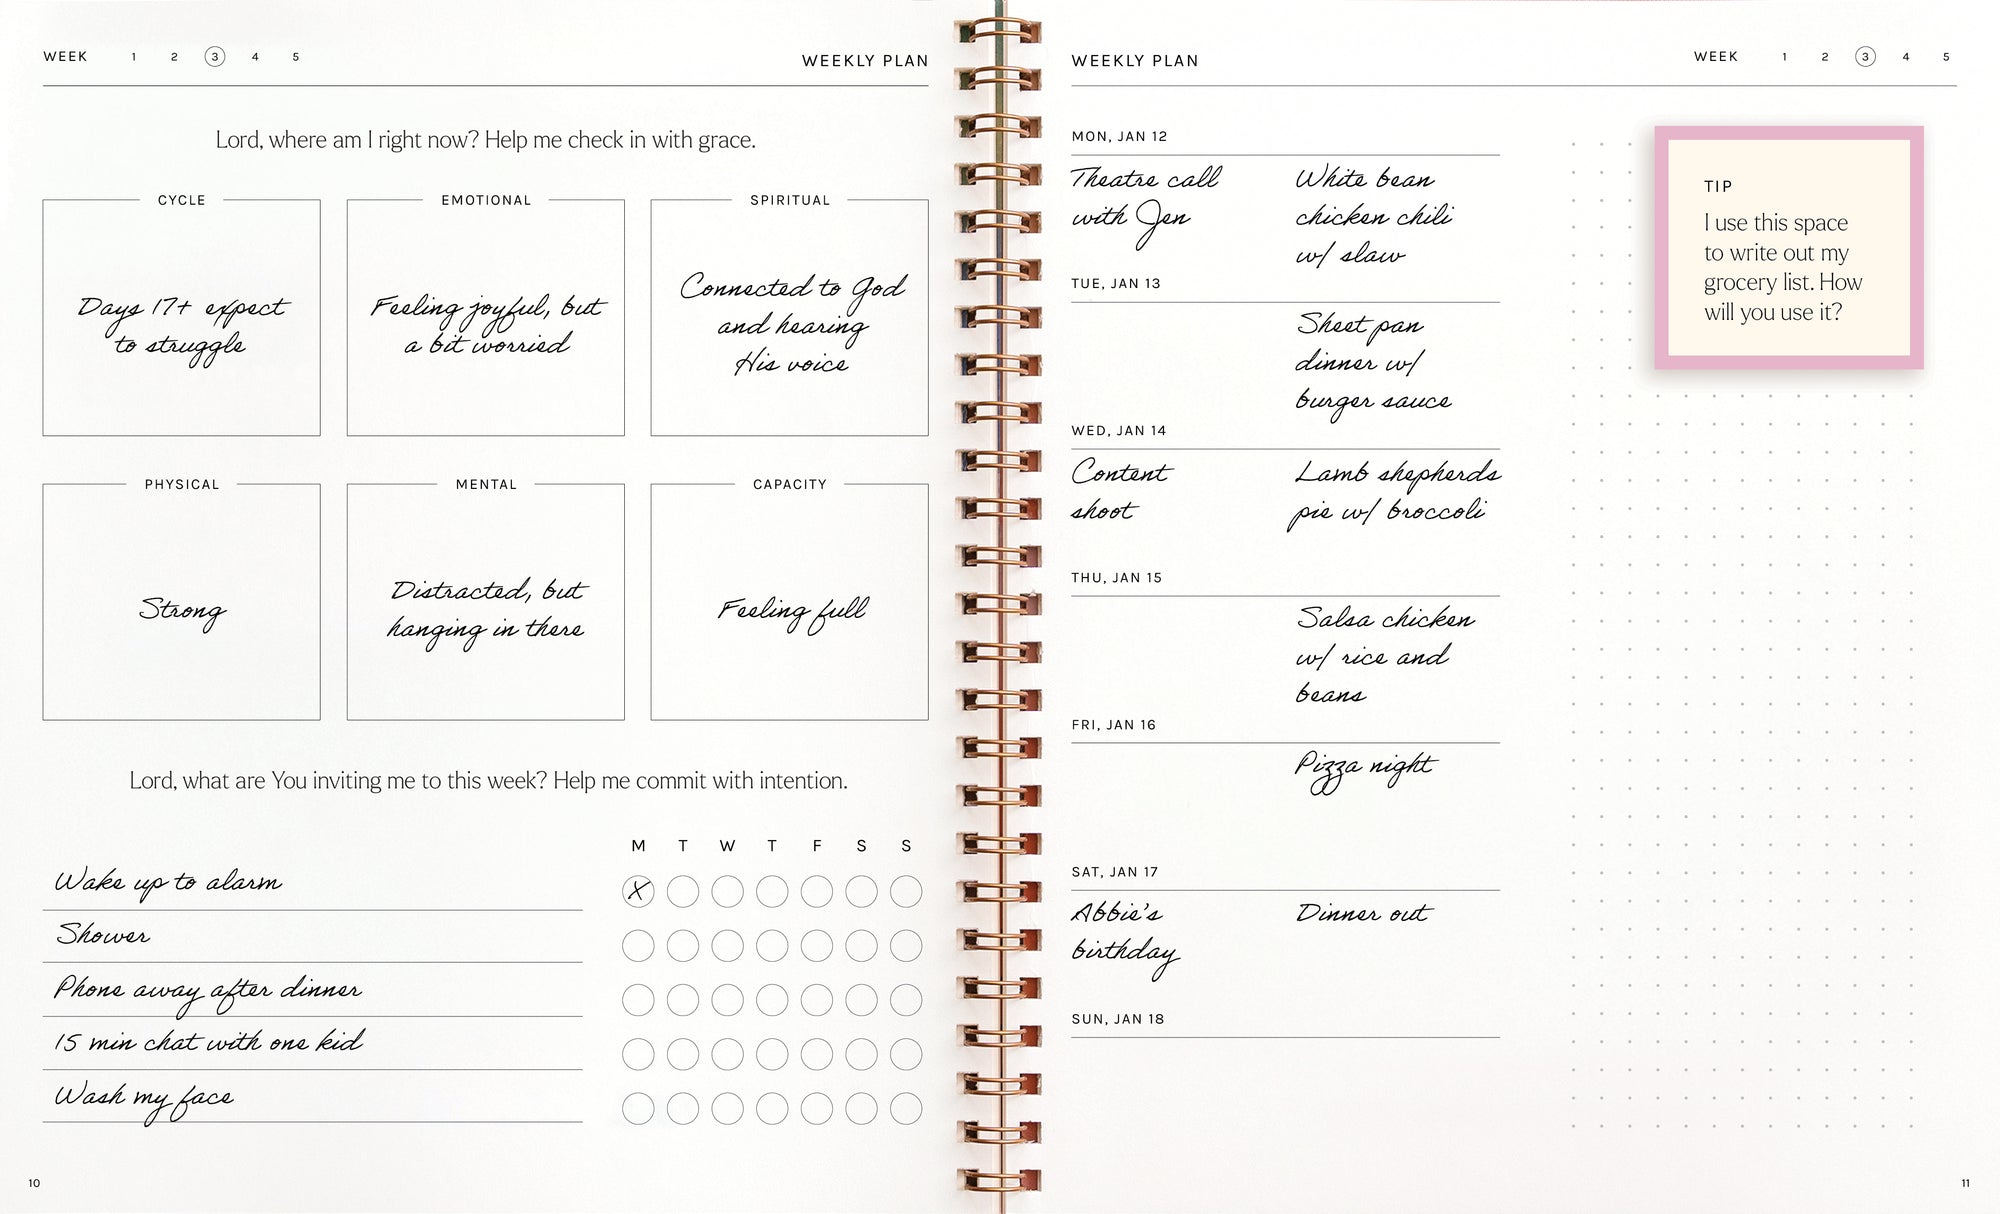 WEEK 1 2 3 4 5
WEEKLY PLAN
Lord, where am I right now? Help me check in with grace.
CYCLE
Days 17+ expect
to struggle
EMOTIONAL
Feeling joyful, but
a bit worried
SPIRITUAL
Connected to God
and hearing
His voice
PHYSICAL
Strong
MENTAL
Distracted, but
hanging in there
CAPACITY
Feeling full
Lord, what are You inviting me to this week? Help me commit with intention.
M T W T F S S
Wake up to alarm X
Shower
Phone away after dinner
15 min chat with one kid
Wash my face
10
WEEKLY PLAN
WEEK 1 2 3 4 5
MON, JAN 12
Theatre call
with Jen
White bean
chicken chili
w/ slaw
TUE, JAN 13
Sheet pan
dinner w/
burger sauce
WED, JAN 14
Content
shoot
Lamb shepherds
pie w/ broccoli
THU, JAN 15
Salsa chicken
w/ rice and
beans
FRI, JAN 16
Pizza night
SAT, JAN 17
Abbie's
birthday
Dinner out
SUN, JAN 18
TIP
I use this space
to write out my
grocery list. How
will you use it?
11